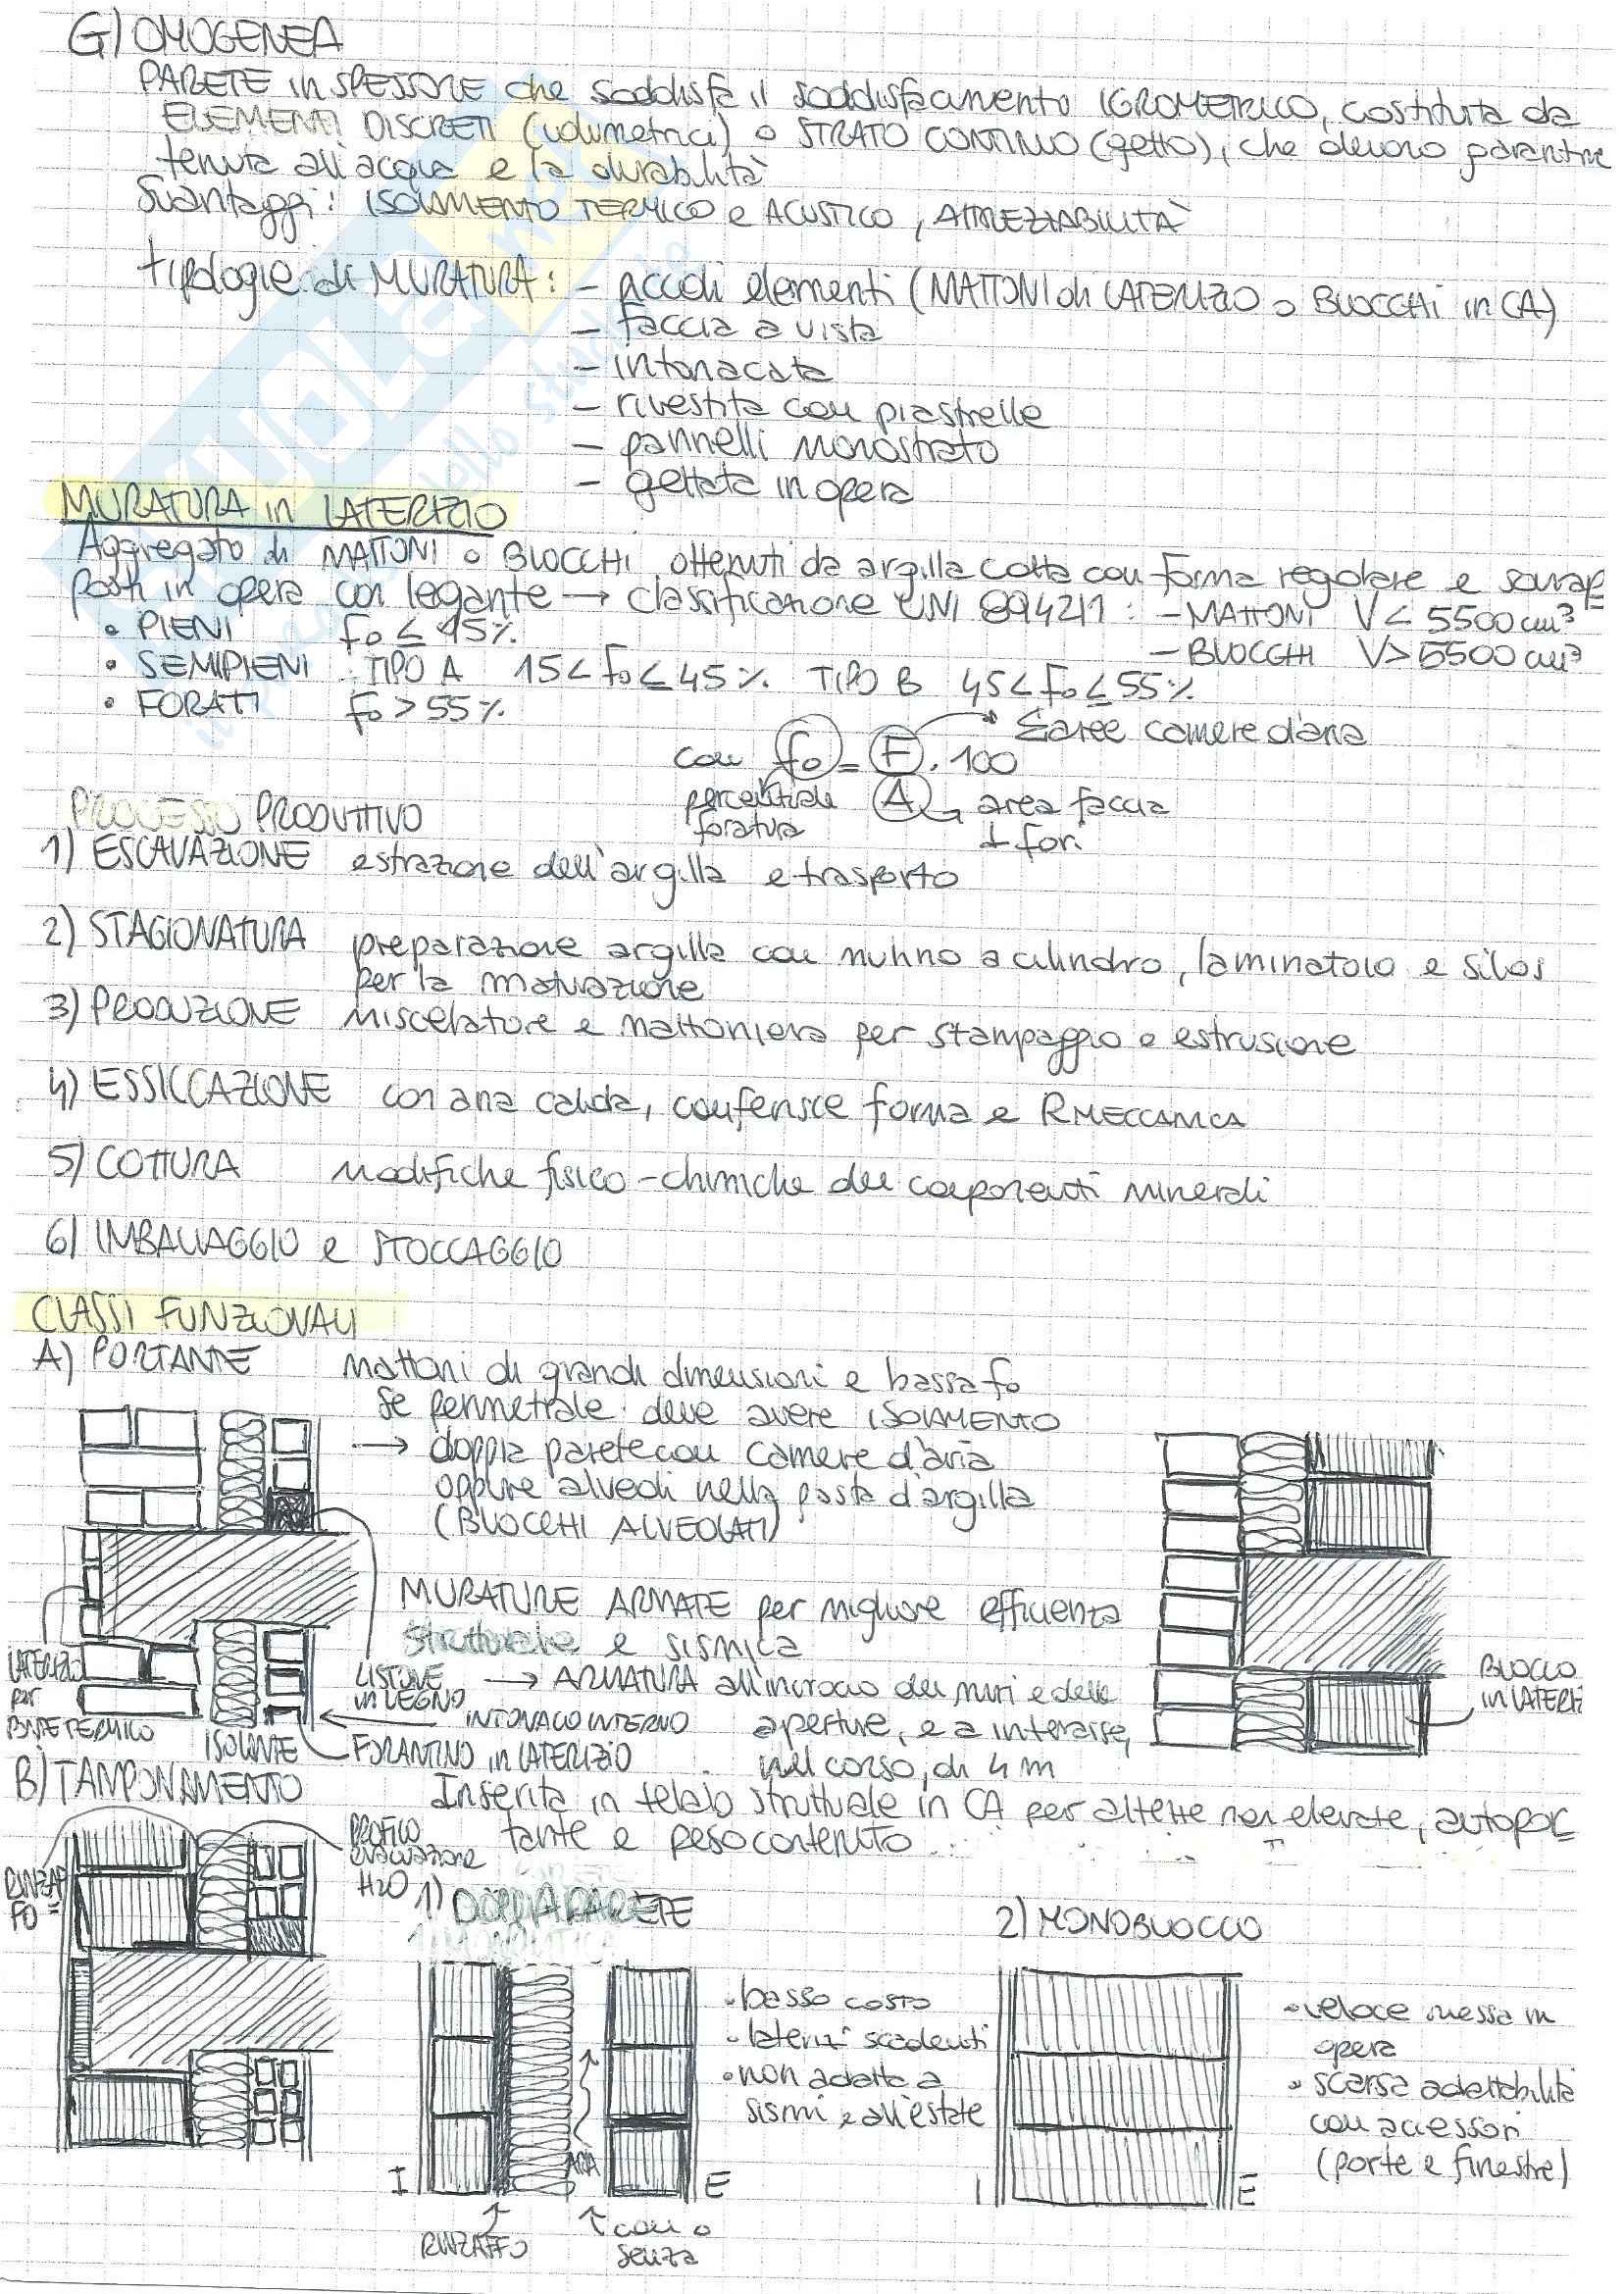 G) OMOGENEA
PARETE in SPESSORE che soddisfa il soddisfacimento IGROMETRICO, costituita da
ELEMENTI DISCRETI (volumetrici) o STRATO CONTINUO (getto), che devono garantire
tenuta all'acqua e la durabilità
Svantaggi: ISOLAMENTO TERMICO e ACUSTICO, ATTREZZABILITÀ
tipologie di MURATURA: - piccoli elementi (MATTONI di LATERIZIO o BLOCCHI in CA)
- faccia a vista
- intonacata
- rivestita con piastrelle
- pannelli monostrato
- gettata in opera
MURATURA in LATERIZIO
Aggregato di MATTONI o BLOCCHI ottenuti da argilla cotta con forma regolare e sovrap=
posti in opera con legante → classificazione UNI 8942/1: - MATTONI V < 5500 cm³
- BLOCCHI V > 5500 cm³
• PIENI fo ≤ 15%
• SEMIPIENI TIPO A 15 < fo ≤ 45% TIPO B 45 < fo ≤ 55%
• FORATI fo > 55%
con fo = F/A · 100
Σ aree camere d'aria
percentuale foratura
area faccia ⊥ fori
PROCESSO PRODUTTIVO
1) ESCAVAZIONE estrazione dell'argilla e trasporto
2) STAGIONATURA preparazione argilla con mulino a cilindro, laminatoio e silos
per la maturazione
3) PRODUZIONE Miscelatore e mattoniera per stampaggio o estrusione
4) ESSICCAZIONE con aria calda, conferisce forma e R MECCANICA
5) COTTURA Modifiche fisico-chimiche dei componenti minerali
6) IMBALLAGGIO e STOCCAGGIO
CLASSI FUNZIONALI
A) PORTANTE Mattoni di grandi dimensioni e bassa fo
Se perimetrale deve avere ISOLAMENTO
→ doppia parete con camere d'aria
oppure alveoli nella pasta d'argilla
(BLOCCHI ALVEOLATI)
MURATURE ARMATE per migliore efficienza
strutturale e sismica
→ ARMATURA all'incrocio dei muri e delle
aperture, e a interasse,
nel corso, di 4 m
LATERIZIO
per
PONTE TERMICO
ISOLANTE
LISTONE
IN LEGNO
INTONACO INTERNO
FORATINO in LATERIZIO
BLOCCO
in LATERIZ
B) TAMPONAMENTO Inserita in telaio strutturale in CA per altezze non elevate, autopor
tante e peso contenuto
RINZAF
FO =
PROFILO
evacuazione
H2O
1) DOPPIA PARETE
• basso costo
• laterizi scadenti
• non adatto a
sismi e all'estate
I
ARIA
E
RINZAFFO
con o
senza
2) MONOBLOCCO
• veloce messa in
opera
• scarsa adattabilità
con accessori
(porte e finestre)
I
E